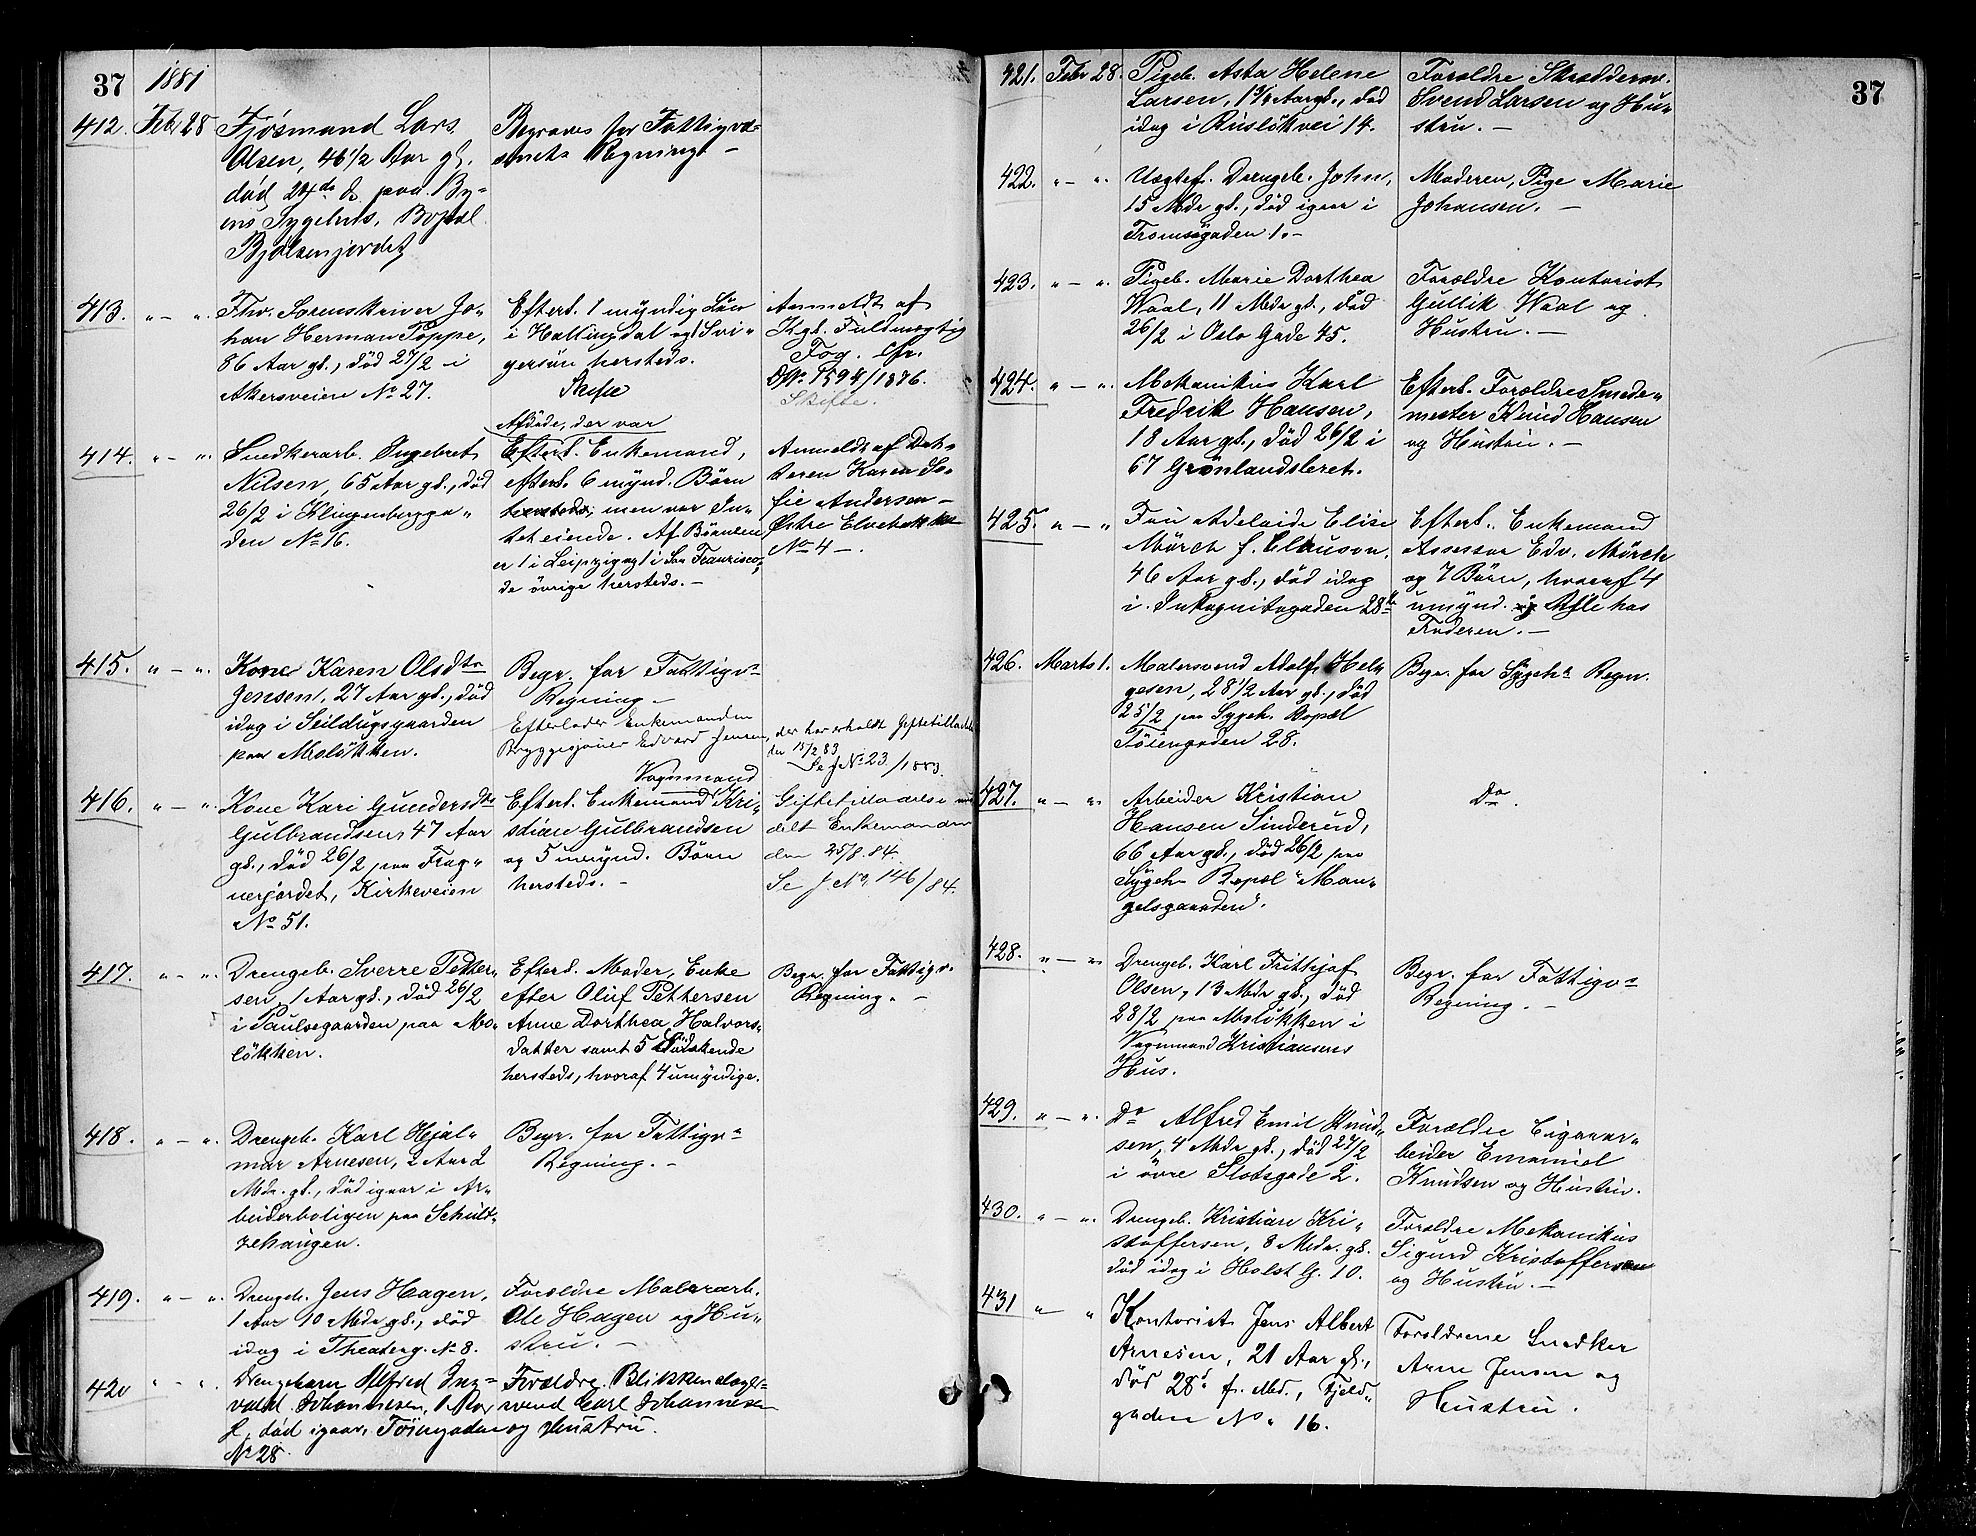 37 1881
412. Febr 28 Fjösmand Lars
Olsen, 46 1/2 Aar gl.
død 24de ds paa By-
ens Sygehus, Bopæl
Bjølsenjordet
Begraves for Fattigvæ-
senets Regning. -
413. " - " Fhv. Sorenskriver Jo-
han Herman Poppe,
86 Aar gl., død 27/2 i
Akersveien No 27.
Efterl. 1 myndig Søn
i Hallingdal og 1 Svi-
gersøn hersteds.
Skifte
Anmeldt af
Kgl. Fuldmægtig
Fog. Cfr.
1594/1876.
Skifte.
414. " - " Snedkerarb. Ingebret
Nilsen, 65 Aar gl., død
26/2 i Klingenbergga-
den No 16.
Afdøde, der var
Efterl. Enkemand,
efterl. 6 mynd. Børn
hersteds, men var In-
tet eiende. Af Børnene
er 1 i Leipzig og 1 i San Francisco,
de øvrige hersteds. -
Anmeldt af Dat-
teren Karen So-
fie Andersen -
Østre Elvebakke
No 4 -.
415. " - " Kone Karen Olsdtr
Jensen, 27 Aar gl., død
idag i Seildugsgaarden
paa Møløkken.
Begr. for Fattigv-
Regning -
Efterlader Enkemanden
Bryggesjouer Edvard Jensen,
der har erholdt Giftetilladelse
den 15/2 83
Se J No 23/1883.
416. " - " Kone Kari Gundersdtr
Gulbrandsen, 47 Aar
gl., død 26/2 paa Frog-
nerjordet, Kirkeveien
No 51.
Vognmand
Efterl. Enkemand Kri-
stian Gulbrandsen
og 5 umynd. Børn
hersteds. -
Giftetilladelse med
delt Enkemanden
den 25/8. 84.
Se J. No. 146/84.
417. " - " Drengeb. Sverre Petter-
sen, 1 Aar gl., død 26/2
i Paulsegaarden paa Mø-
løkken.
Efterl. Moder, Enke
efter Oluf Pettersen
Anne Dorthea Halvors-
datter samt 5 Sødskende
hersteds, hvoraf 4 umyndige.
Begr. for Fattigv.
Regning. -
418. " - " Drengeb. Karl Hjal-
mar Arnesen, 2 Aar 2
Mdr. gl., død igaar i Ar-
beiderboligen paa Schult-
zehaugen.
Begr. for Fattigv-
Regning. -
419. " - " Drengeb. Jens Hagen,
1 Aar 10 Mdr gl., død
idag i Theaterg. No 8.
Forældre Malerarb.
Ole Hagen og Hu-
stru. -
420 " - " Drengebarn Alfred Ing-
vald Johannesen, 1 Aar
gl, død igaar, Tøiengaden
No 28
Forældre Blikkenslager-
svend Carl Johannesen
og Hustru.
37
421. Febr 28. Pigeb. Asta Helene
Larsen, 1 3/4 Aar gl., død
idag i Ruseløkvei 14.
Forældre Skrædderm.
Svend Larsen og Hu-
stru. -
422. " - " Uægtef. Drengeb. John,
15 Mdr gl., død igaar i
Tromsøgaden 1. -
Moderen, Pige Marie
Johansen. -
423. " - " Pigeb. Marie Dorthea
Waal, 11 Mdr gl., død
26/2 i Oslo Gade 45.
Forældre Kontorist
Gullik Waal og
Hustru. -
424. " - " Mekanikus Karl
Fredrik Hansen,
18 Aar gl., død 26/2 i
67 Grønlandsleret.
Efterl. Forældre Smede-
mester Knud Hansen
og Hustru. -
425. " - " Fru Adelaide Elise
Mørch f. Clauson,
46 Aar gl., død idag
i Inkognitogaden 28b
Efterl. Enkemand
Assessor Edv. Mørch
og 7 Børn, hvoraf 4
umynd. Alle hos
Faderen. -
426. Marts 1. Malersvend Adolf Hel-
gesen, 28 1/2 Aar gl., død
25/2 paa Sygeh. Bopæl
Tøiengaden 28.
Begr. for Sygeh. Regn.
427. " - " Arbeider Kristian
Hansen Sinderud,
66 Aar gl., død 26/2 paa
Sygeh. Bopæl "Man-
gelsgaarden".
Do.
428. " - " Drengeb. Karl Frithjof
Olsen, 13 Mdr gl., død
28/2 paa Møløkken i
Vognmand Kristiansens
Hus.
Begr. for Fattigv-
Regning. -
429. " - " Do Alfred Emil Knud-
sen, 4 Mdr gl., død 27/2
i øvre Slotsgade 2.
Forældre Cigarar-
beider Emanuel
Knudsen og Hustru.
430. " - " Drengeb. Kristian Kri-
stoffersen, 8 Mdr. gl.
død idag i Holst G. 10.
Forældre Mekanikus
Sigurd Kristoffersen
og Hustru. -
431 " " Kontorist Jens Albert
Arnesen, 21 Aar gl.,
død 28d f. Md., Fjeld-
gaden No. 16.
Forældrene Snedker
Arne Jensen og
Hustru.